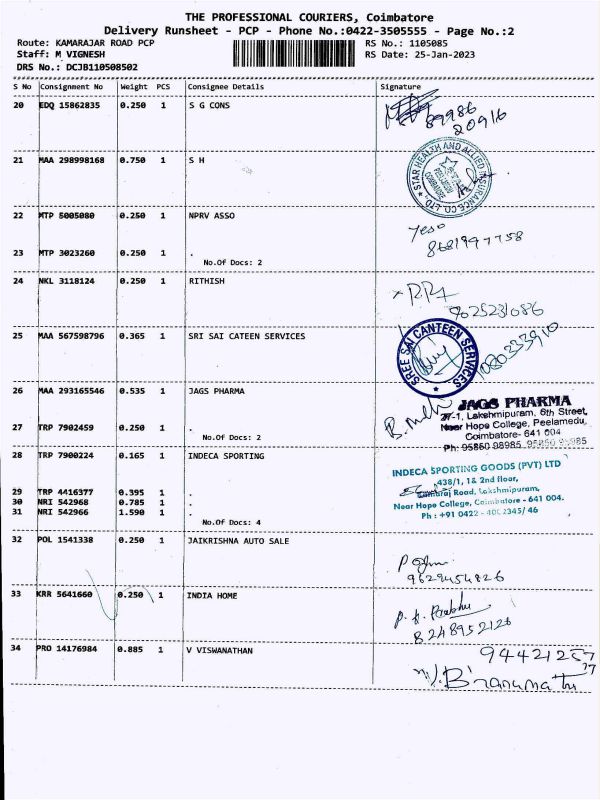 THE PROFESSIONAL COURIERS, Coimbatore
Delivery Runsheet - PCP - Phone No.:0422-3505555 - Page No.:2
Route: KAMARAJAR ROAD PCP
RS No.: 1105085
Staff: M VIGNESH
RS Date: 25-Jan-2023
DRS No.: DCJB110508502
S No Consignment No Weight PCS Consignee Details Signature
20 EDQ 15862835 0.250 1 S G CONS
89986
20916
21 MAA 298998168 0.750 1 S H
STAR HEALTH AND ALLIED INSURANCE CO. LTD.
COIMBATORE
22 MTP 5005080 0.250 1 NPRV ASSO
23 MTP 3023260 0.250 1 .
No.Of Docs: 2
24 NKL 3118124 0.250 1 RITHISH
25 MAA 567598796 0.365 1 SRI SAI CATEEN SERVICES
SREE SAI CANTEEN SERVICES
26 MAA 293165546 0.535 1 JAGS PHARMA
JAGS PHARMA
27-1, Lakshmipuram, 6th Street,
Near Hope College, Peelamedu,
Coimbatore- 641 004
Ph: 95860 98985
27 TRP 7902459 0.250 1 .
No.Of Docs: 2
28 TRP 7900224 0.165 1 INDECA SPORTING
INDECA SPORTING GOODS (PVT) LTD
438/1, 1& 2nd floor,
Road, Lakshmipuram,
Near Hope College, Coimbatore - 641 004.
Ph : +91 0422 - 2345/ 46
29 TRP 4416377 0.395 1 .
30 NRI 542968 0.785 1 .
31 NRI 542966 1.590 1 .
No.Of Docs: 4
32 POL 1541338 0.250 1 JAIKRISHNA AUTO SALE
9629454826
33 KRR 5641660 0.250 1 INDIA HOME
8248952126
34 PRO 14176984 0.885 1 V VISWANATHAN
94421257
77